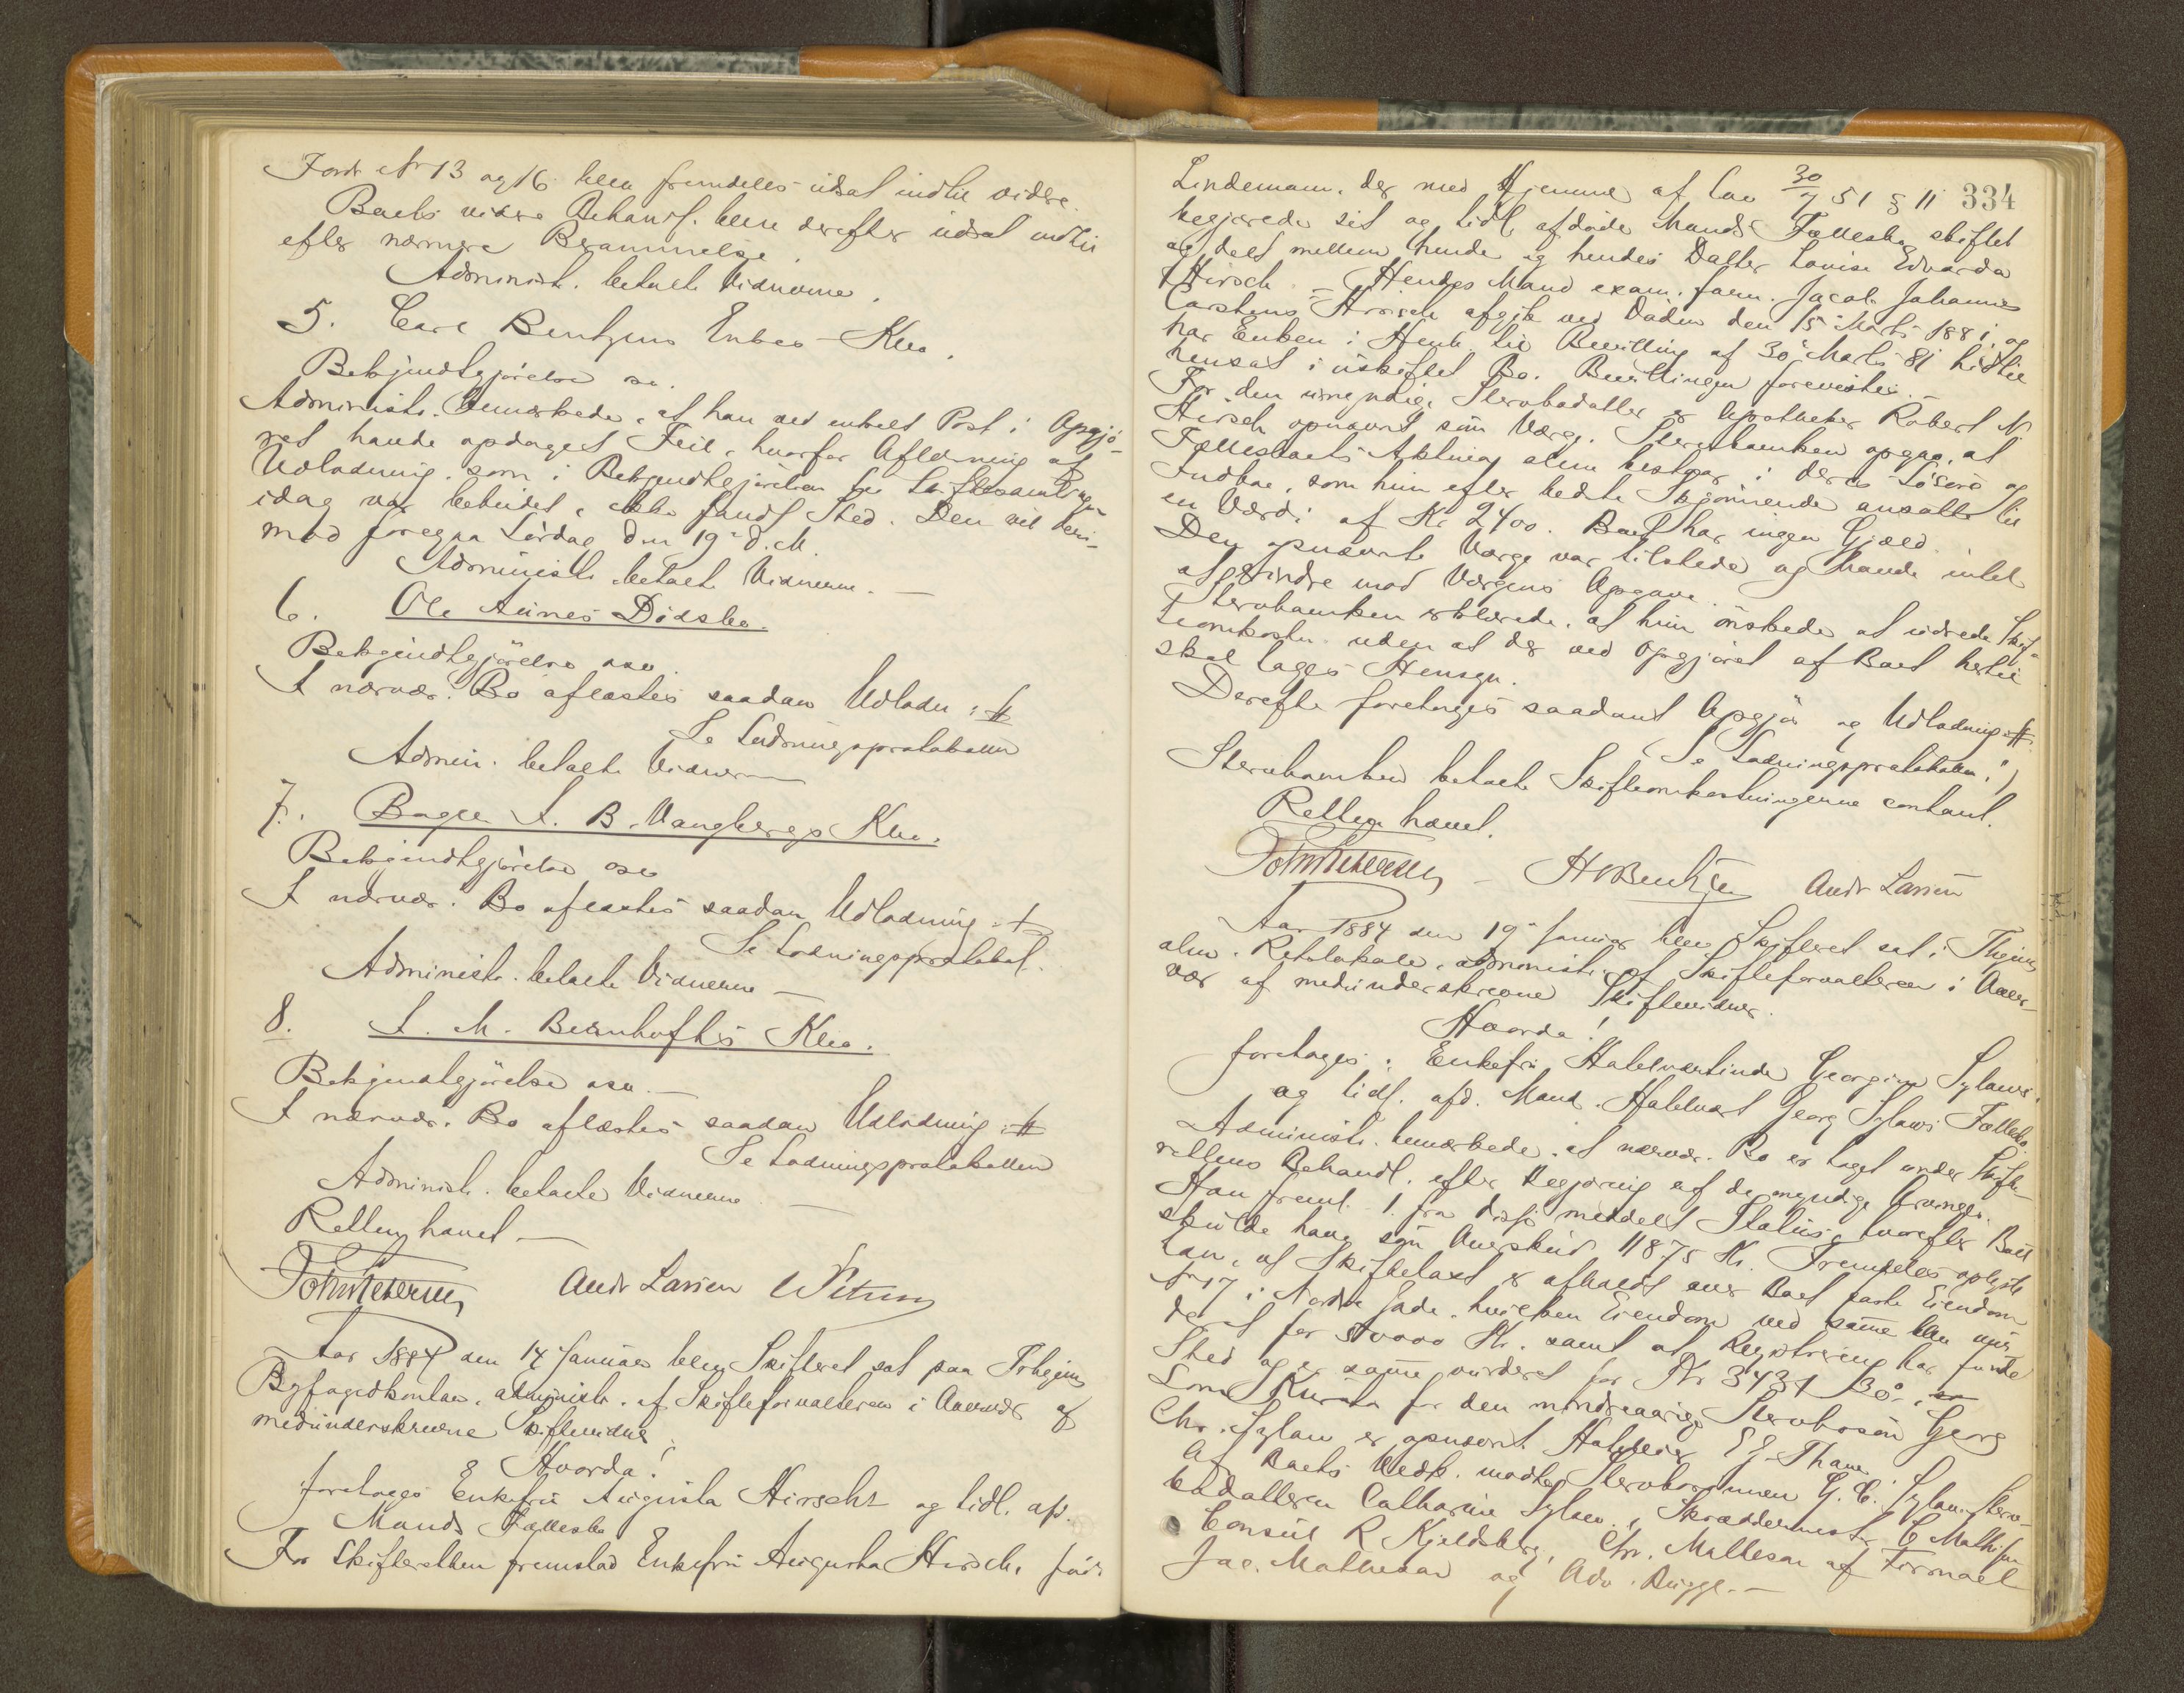 Fordr. No 13 og 16 blev fremdeles udsat indtil videre.
Boets videre Behandl. blev derefter udsat indtil
efter nærmere Berammelse.
Administr. betalte Vidnerne.
5. Carl Bentzens Enkes Kbo.
Bekjendtgjörelse osv.
Administr. bemærkede, at han ved enkelt Post i Opgjö-
ret havde opdaget Feil, hvorfor Aflæsning af
Udlodning, som i Bekjendtgjörelsen for Skiftesamlingen
idag var bebudet, ikke fandt Sted. Den vil deri-
mod foregaa Lördag den 19de d. M.
Administr. betalte Vidnerne. —
6. Ole Aunes Dödsbo.
Bekjendtgjörelse osv.
I nærvær. Bo aflæstes saadan Udlodn: #
Se Lodningsprotokollen
Admin. betalte Vidnerne
7. Bager I. B. Vangbergs Kbo.
Bekjendtgjörelse osv
I nærvær. Bo aflæstes saadan Udlodning #
Se Lodningsprotokol.
Administr. betalte Vidnerne —
8. I. M. Bernhofts Kbo.
Bekjendtgjörelse osv. —
I nærvær. Bo aflæstes saadan Udlodning: #
Se Lodningsprotokollen
Administr. betalte Vidnerne —
Retten hævet —
Andr Larsen
Aar 1884 den 14 Januar blev Skifteret sat paa Trhjems
Byfogedkontor, administr. af Skifteforvalteren i Overvær af
medunderskrevne Skiftevidner
Hvorda!
foretoges Enkefru Augusta Hirsch og tidl. afd.
Mands Fællesbo
For Skifteretten fremstod Enkefru Augusta Hirsch, född
334
Lindeman, der med Hjemmel af Lov 30/7 51 § 11
begjærede sit og tidl. afdöde Mands Fællesbo skiftet
og delt mellem hende og hendes Datter Louise Edvarda
Hirsch. — Hendes Mand exam. farm. Jacob Johannes
Carstens Hirsch afgik ved Döden den 15 Marts 1881 og
har Enken i Henh. til Bevilling af 30 Marts 81 hidtil
hensat i uskiftet Bo. Bevillingen forevistes. —
For den umyndige Stervbodatter er Apotheker Robert N.
Hirsch opnævnt som Værge. Stervboenken opgav, at
Fællesboets Aktiva alene bestaar i deres Lösöre og
Indbo, som hun efter bedste Skjönnende ansatte til
en Værdi af Kr 2400. Boet har ingen Gjæld.
Den opnævnte Værge var tilstede og havde intet
at erindre mod Værgens Opgave.
Stervboenken erklærede, at hun önskede at udrede Skif-
teomkostn. uden at der ved Opgjöret af Boet hertil
skal tages Hensyn.
Derefter foretoges saadant Opgjör og Udlodning: #
(Se Lodningsprotokollen.)
Stervboenken betalte Skifteomkostningerne contant.
Retten hævet.
Andr Larsen
Aar 1884 den 19de Januar blev Skifteret sat i Thjems
alm. Retslokale, administr. af Skifteforvalteren i Over-
vær af medunderskrevne Skiftevidner.
Hvorda!
foretoges: Enkefru Hotelværtinde Georgine Sylows
og tidl. afd. Mand Hotelvært Georg Sylows Fællesbo.
Administr. bemærkede, at nærvær. Bo er taget under Skifte-
rettens Behandl. efter Begjæring af de myndige Arvinger.
Han freml. 1. fra meddelt Status, hvorefter Boet
skulde have som Overskud 11875 Kr. Fremdeles oplyste
han, at Skiftetaxt er afholdt over Boet faste Eiendom
No 17 i Nordre Gade, hvilken Eiendom ved samme blev vur-
deret for 50000 Kr. samt at Registrering har fundet
Sted og er samme vurderet for Kr 3431 30.
Som Kurator for den mindreaarige Stervbosön Georg
Chr. Sylow er opnævnt Hoteleier E. J. Thane.
Af Boets Vedk. mödte Stervbosönnen G. C. Sylow, Sterv-
bodatteren Catharine Sylow, Skræddermester C. Mathisen
Consul R Kjeldsberg, Chr. Mathesen af Firmaet
Jac. Mathesen og Adv. Bugge. —